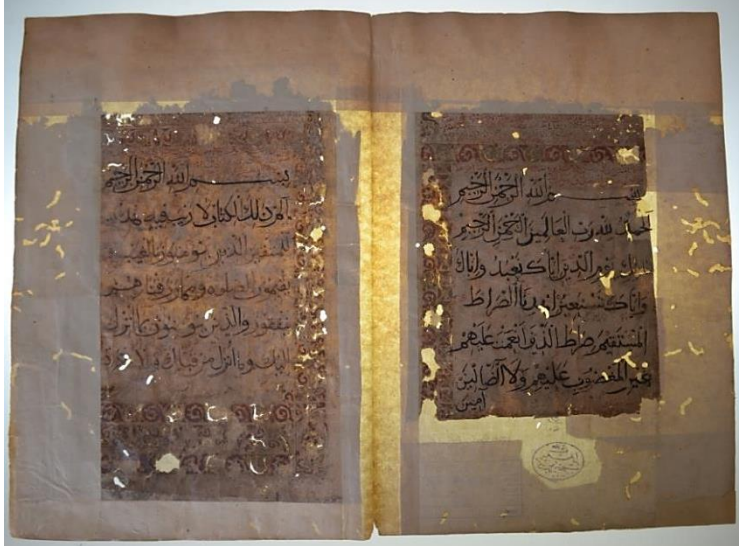 بسم الله الرحمن الرحيم
الحمد لله رب العالمين الرحمن الرحيم
يوم الدين اياك نعبد واياك
واياك نستعين اهدنا الصراط
المستقيم صراط الذين انعمت عليهم
غير المغضوب عليهم ولا الضالين
امين
بسم الله الرحمن الرحيم
الم ذلك الكتاب لا ريب فيه هدى
للمتقين الذين يومنون بالغيب و
يقيمون الصلوه ومما رزقناهم
ينفقون والذين يومنون انزل
اليك وما انزل من قبلك